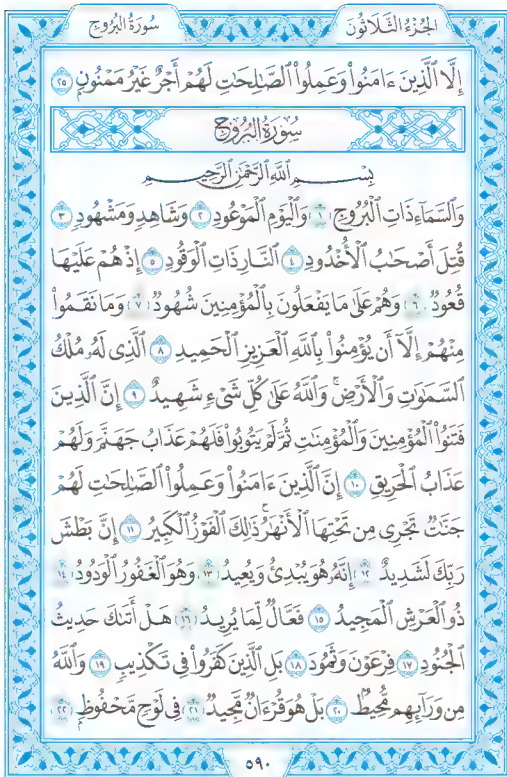 الجُزْءُ الثَّلَاثُونَ سُورَةُ البُرُوجِ
إِلَّا ٱلَّذِينَ ءَامَنُوا۟ وَعَمِلُوا۟ ٱلصَّـٰلِحَـٰتِ لَهُمْ أَجْرٌ غَيْرُ مَمْنُونٍۭ ٢٥
سُورَةُ البُرُوجِ
بِسْمِ ٱللَّهِ ٱلرَّحْمَـٰنِ ٱلرَّحِيمِ
وَٱلسَّمَآءِ ذَاتِ ٱلْبُرُوجِ ١ وَٱلْيَوْمِ ٱلْمَوْعُودِ ٢ وَشَاهِدٍ وَمَشْهُودٍ ٣
قُتِلَ أَصْحَـٰبُ ٱلْأُخْدُودِ ٤ ٱلنَّارِ ذَاتِ ٱلْوَقُودِ ٥ إِذْ هُمْ عَلَيْهَا
قُعُودٌ ٦ وَهُمْ عَلَىٰ مَا يَفْعَلُونَ بِٱلْمُؤْمِنِينَ شُهُودٌ ٧ وَمَا نَقَمُوا۟
مِنْهُمْ إِلَّآ أَن يُؤْمِنُوا۟ بِٱللَّهِ ٱلْعَزِيزِ ٱلْحَمِيدِ ٨ ٱلَّذِى لَهُۥ مُلْكُ
ٱلسَّمَـٰوَٰتِ وَٱلْأَرْضِ ۚ وَٱللَّهُ عَلَىٰ كُلِّ شَىْءٍ شَهِيدٌ ٩ إِنَّ ٱلَّذِينَ
فَتَنُوا۟ ٱلْمُؤْمِنِينَ وَٱلْمُؤْمِنَـٰتِ ثُمَّ لَمْ يَتُوبُوا۟ فَلَهُمْ عَذَابُ جَهَنَّمَ وَلَهُمْ
عَذَابُ ٱلْحَرِيقِ ١٠ إِنَّ ٱلَّذِينَ ءَامَنُوا۟ وَعَمِلُوا۟ ٱلصَّـٰلِحَـٰتِ لَهُمْ
جَنَّـٰتٌ تَجْرِى مِن تَحْتِهَا ٱلْأَنْهَـٰرُ ۚ ذَٰلِكَ ٱلْفَوْزُ ٱلْكَبِيرُ ١١ إِنَّ بَطْشَ
رَبِّكَ لَشَدِيدٌ ١٢ إِنَّهُۥ هُوَ يُبْدِئُ وَيُعِيدُ ١٣ وَهُوَ ٱلْغَفُورُ ٱلْوَدُودُ ١٤
ذُو ٱلْعَرْشِ ٱلْمَجِيدُ ١٥ فَعَّالٌ لِّمَا يُرِيدُ ١٦ هَلْ أَتَىٰكَ حَدِيثُ
ٱلْجُنُودِ ١٧ فِرْعَوْنَ وَثَمُودَ ١٨ بَلِ ٱلَّذِينَ كَفَرُوا۟ فِى تَكْذِيبٍ ١٩ وَٱللَّهُ
مِن وَرَآئِهِم مُّحِيطٌۢ ٢٠ بَلْ هُوَ قُرْءَانٌ مَّجِيدٌ ٢١ فِى لَوْحٍ مَّحْفُوظٍۭ ٢٢
٥٩٠